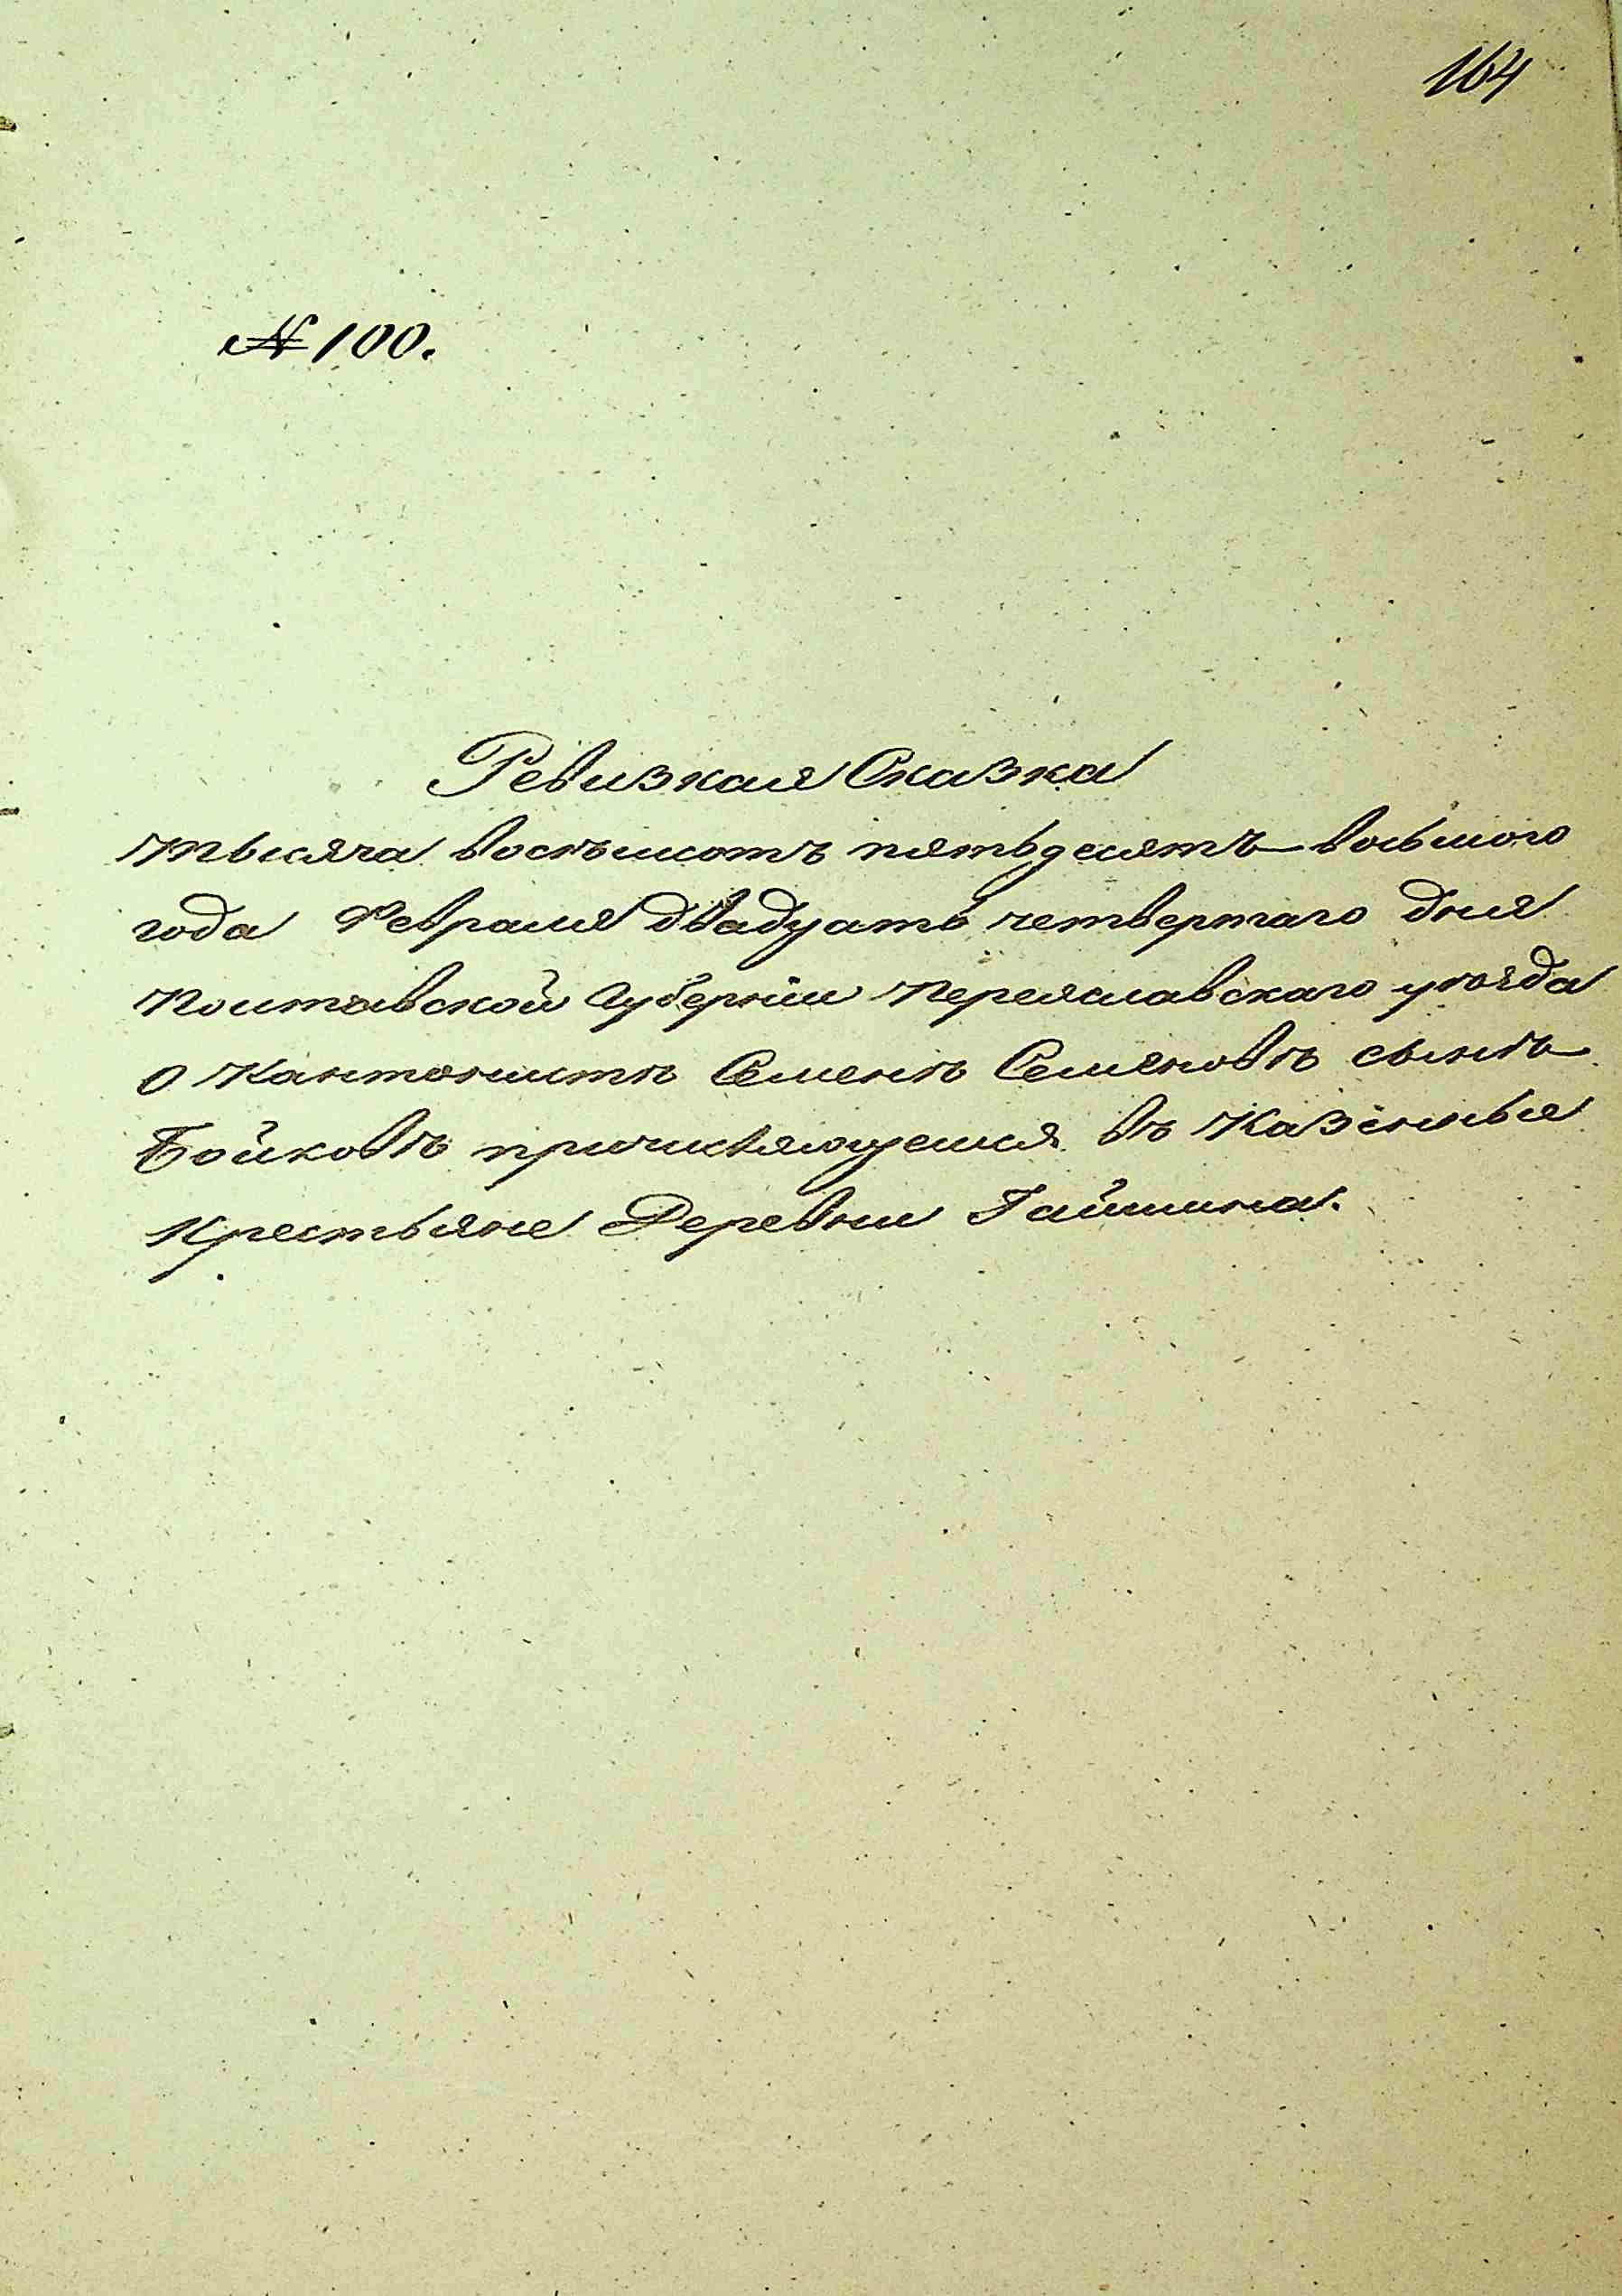 164
№ 100.
Ревизкая Сказка
тысяча восъмсотъ пятьдесятъ восьмого
года Февраля двадцать четвертаго дня
Полтавской Губерніи Переяславскаго уѣзда
о Кантонистѣ Семенѣ Семеновѣ сынѣ
Бойковѣ причисляющемся въ Казенные
Крестьяне Деревни Гайшина.